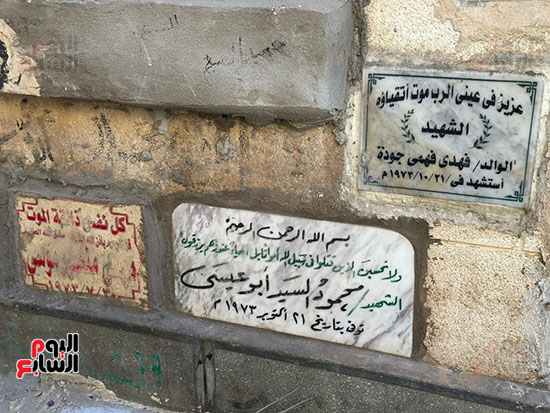 عزيز فى عينى الرب موت أتقياؤه
الشهيد
الوالد/ فهدى فهمى جودة
أستشهد فى/ ٢١/ ١٠/ ١٩٧٣م
بسم الله الرحمن الرحيم
ولا تحسبن الذين قتلوا فى سبيل الله أمواتا بل أحياء عند ربهم يرزقون
الشهيد/ محمود السيد أبو عيسى
توفى بتاريخ ٢١ أكتوبر ١٩٧٣ م
كل نفس ذائقة الموت
اليوم
السابع